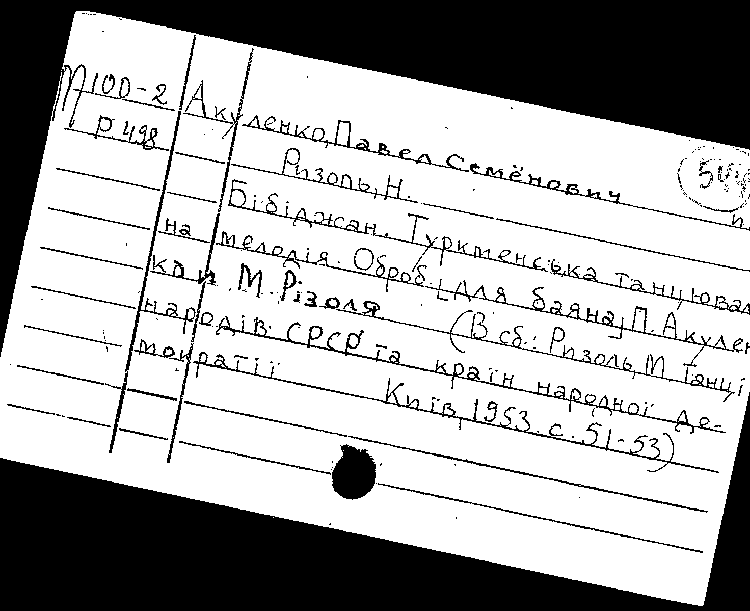 М100-2
Р498
Акуленко, Павел Семёнович
Ризоль, Н.
Бібіджан. Туркменська танцюваль
на мелодія. Оброб. [для баяна] П. Акулен
ка и М. Різоля (В сб.: Ризоль, М. Танці
народів СРСР та країн народної де-
мократії Київ, 1953. с. 51-53)